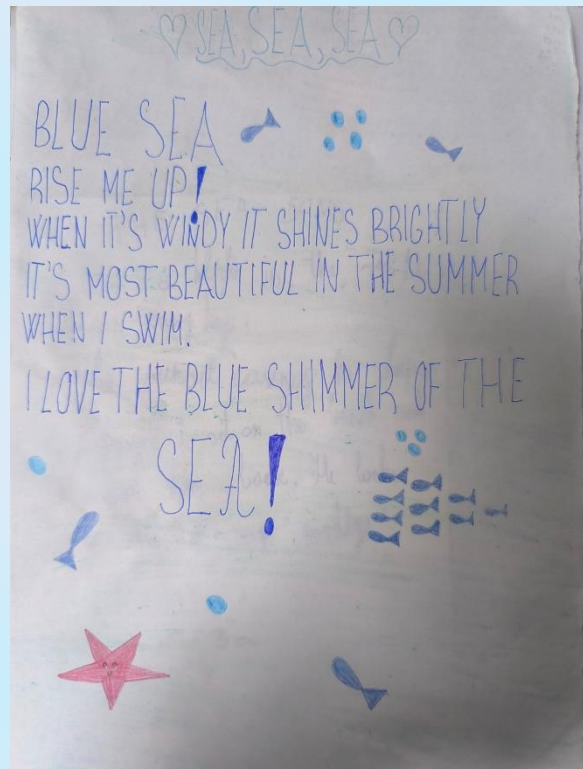 SEA, SEA, SEA
BLUE SEA
RISE ME UP!
WHEN IT'S WINDY IT SHINES BRIGHTLY
IT'S MOST BEAUTIFUL IN THE SUMMER
WHEN I SWIM.
I LOVE THE BLUE SHIMMER OF THE
SEA!